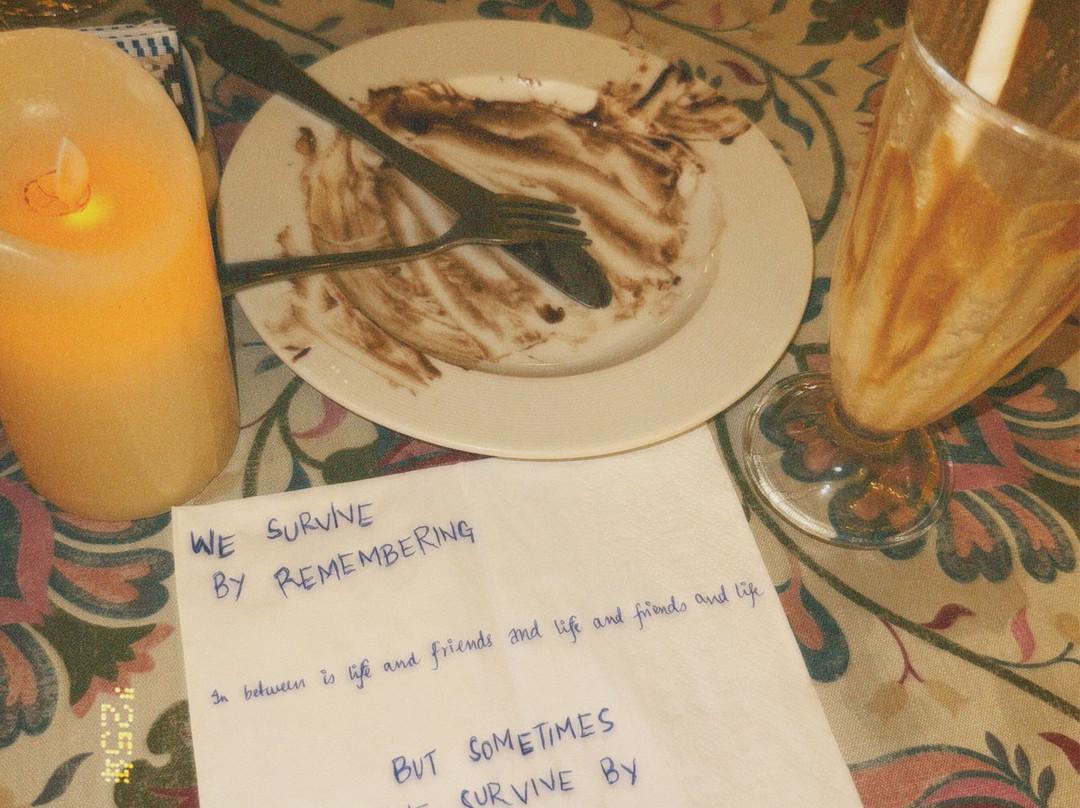 WE SURVIVE
BY REMEMBERING
In between is life and friends and life and friends and life
BUT SOMETIMES
SURVIVE BY